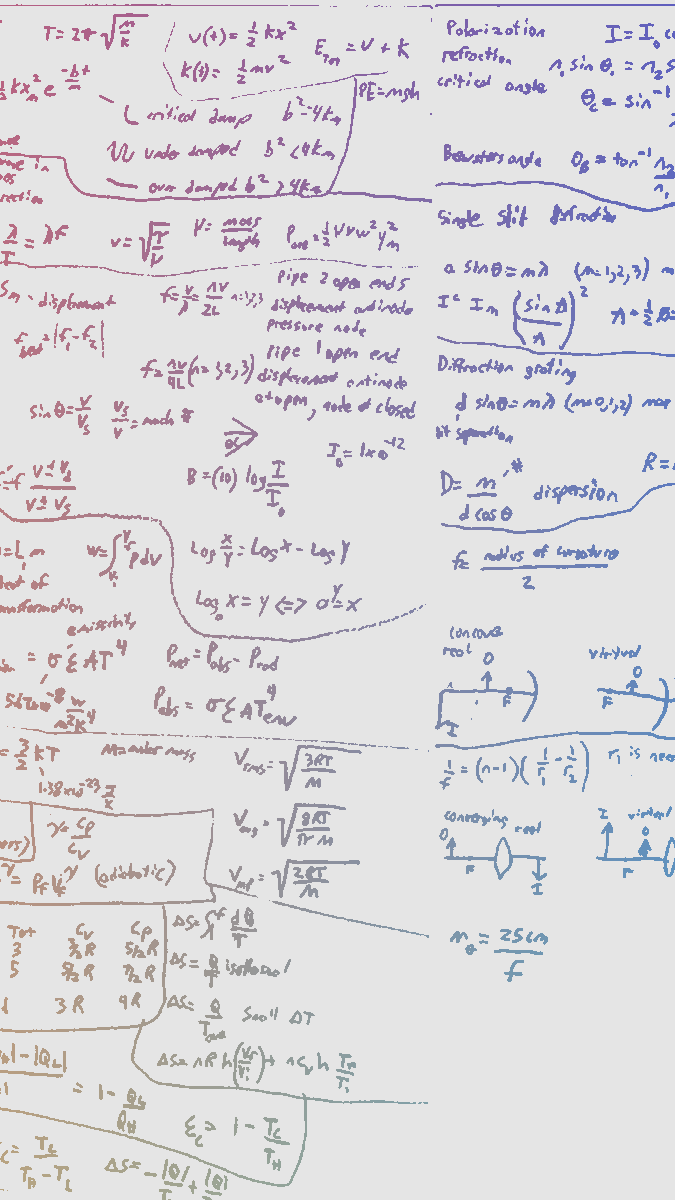 T = 2π √(m/k)
v(t) = 1/2 kx²
k(t) = 1/2 mv²
E = v + k
kx²m e^(-bt
PE = mgh
critical damp b² = 4km
under damped b² < 4km
over damped b² > 4km
= λf
v = √(T/μ)
μ = mass/length
P = 1/2 μvw²y²m
Sm - displacement
f = v/λ = nv/2L n=1,2,3
pipe 2 open ends
displacement antinode
pressure node
f = |f1 - f2|
f = nv/4L (n=1,2,3)
pipe 1 open end
displacement antinode
at open, node at closed
sin θ = v/vs
vs/v = mach #
I0 = 1x10^-12
B = (10) log I/I0
f v ± / v ± vs
w = ∫ pdv
Log x/y = Log x - Log y
Log x = y <=> a^y = x
transformation
emissivity
= σ Ɛ AT⁴
Pnet = Pabs - Prad
Pabs = σ Ɛ AT⁴env
w/m²K⁴
= 3/2 kT
M = molar mass
1.38x10^-23 J/K
Vrms = √(3RT/M)
γ = Cp/Cv
Vavg = √(8RT/πM)
= Pf Vf^γ (adiabatic)
Vmp = √(2RT/M)
Tot Cv Cp
3 3/2 R 5/2 R
5 5/2 R 7/2 R
3R 4R
ΔS = ∫ dQ/T
ΔS = Q/T isothermal
ΔS = Q/Tave small ΔT
ΔS = nR ln(Vf/Vi) + nCv ln
| - |QL|
= 1 - QL/QH
Ɛc = 1 - TC/TH
= TL/(TH - TL)
ΔS = -|Q|/T + |Q|
Polarization
I = I0
refraction
n1 sin θ1 = n2 s
critical angle
θc = sin^-1
Brewsters angle θB = tan^-1 n2/n1
Single Slit diffraction
a sin θ = mλ (m=1,2,3) m
I = Im (sin
)²
Diffraction grating
d sin θ = mλ (m=0,1,2) max
slit separation
D = m/(d cos θ) dispersion
R =
f = radius of curvature/2
concave
real
O
F
I
virtual
O
F
1/f = (n-1)(1/r1 - 1/r2)
r1 is
converging real
O
F
I
I
virtual
O
F
mθ = 25cm/f